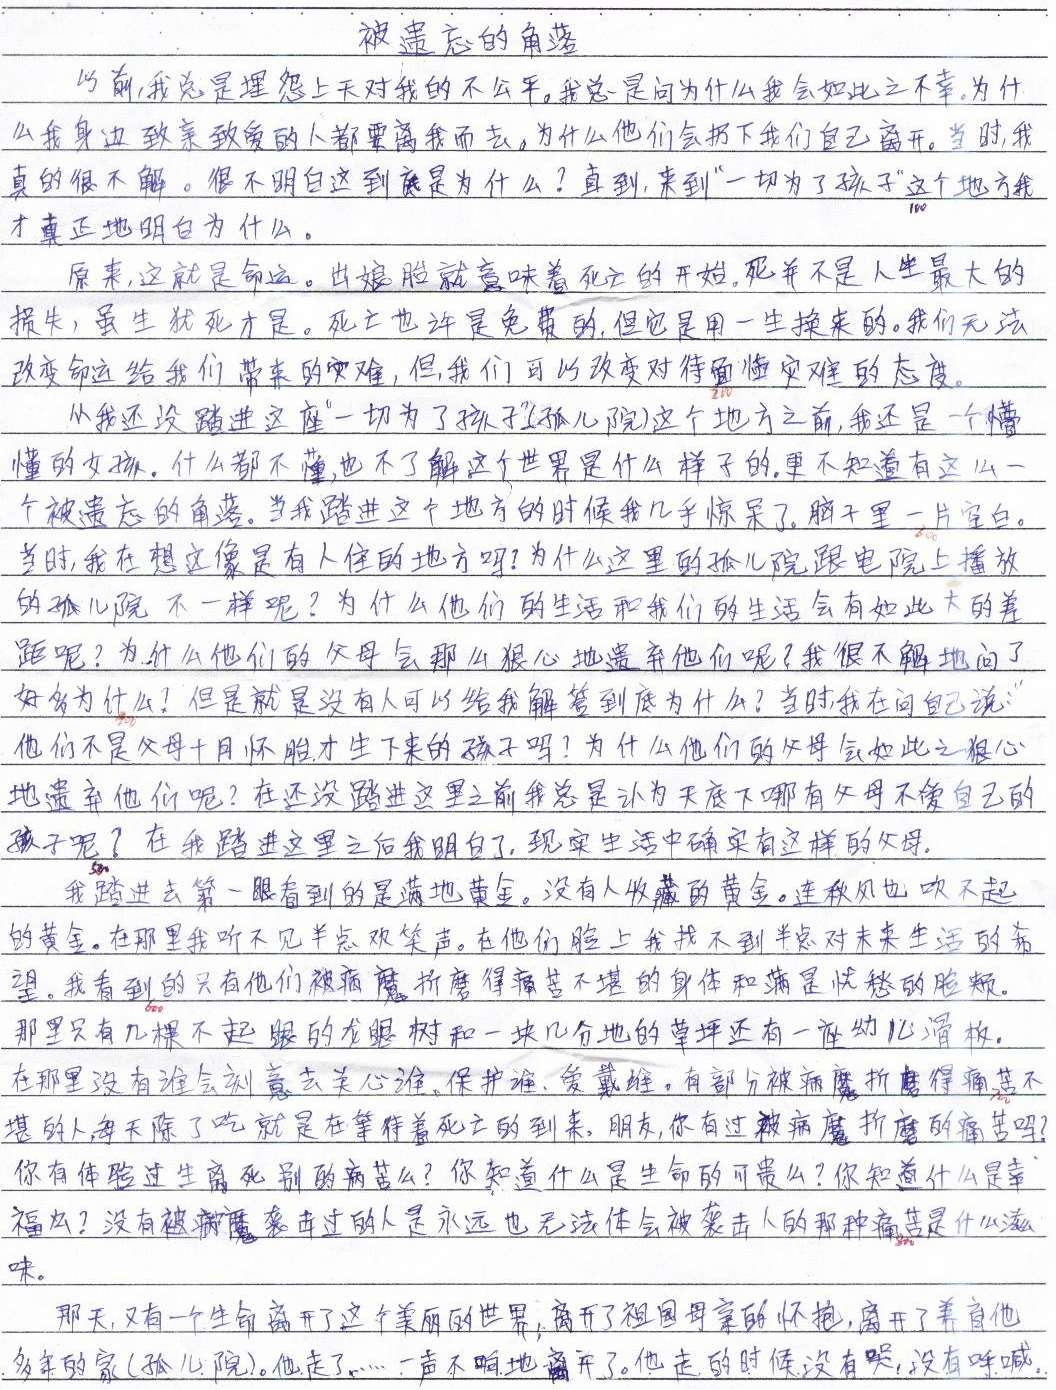 被遗忘的角落
以前,我总是埋怨上天对我的不公平。我总是问为什么我会如此之不幸。为什
么我身边致亲致爱的人都要离我而去。为什么他们会扔下我们自己离开。当时,我
真的很不解。很不明白这到底是为什么?直到,来到“一切为了孩子”这个地方我
100
才真正地明白为什么。
原来,这就是命运。出娘胎就意味着死亡的开始。死并不是人生最大的
损失,虽生犹死才是。死亡也许是免费的,但它是用一生换来的。我们无法
改变命运给我们带来的灾难,但,我们可以改变对待面怯灾难的态度。
200
从我还没踏进这座“一切为了孩子”(孤儿院)这个地方之前,我还是一个懵
懂的女孩。什么都不懂,也不了解这个世界是什么样子的。更不知道有这么一
个被遗忘的角落。当我踏进这个地方的时候我几乎惊呆了。脑子里一片空白。
当时,我在想这像是有人住的地方吗?为什么这里的孤儿院跟电院上播放
的孤儿院不一样呢?为什么他们的生活和我们的生活会有如此大的差
距呢?为什么他们的父母会那么狠心地遗弃他们呢?我很不解地问了
好多为什么?但是就是没有人可以给我解答到底为什么?当时,我在问自己说:“
400
他们不是父母十月怀胎才生下来的孩子吗?为什么他们的父母会如此之狠心
地遗弃他们呢?在还没踏进这里之前我总是认为天底下哪有父母不爱自己的
孩子呢?在我踏进这里之后我明白了。现实生活中确实有这样的父母。
500
我踏进去第一眼看到的是满地黄金。没有人收藏的黄金。连秋风也吹不起
的黄金。在那里我听不见半点欢笑声。在他们脸上我找不到半点对未来生活的希
望。我看到的只有他们被病魔折磨得痛苦不堪的身体和满是忧愁的脸颊。
600
那里只有几棵不起眼的龙眼树和一块几分地的草坪还有一座幼儿滑板。
在那里没有谁会刻意去关心谁、保护谁、爱戴谁。有部分被病魔折磨得痛苦不
700
堪的人每天除了吃就是在等待着死亡的到来。朋友,你有过被病魔折磨的痛苦吗?
你有体验过生离死别的病苦么?你知道什么是生命的可贵么?你知道什么是幸
福么?没有被病魔袭击过的人是永远也无法体会被袭击人的那种痛苦是什么滋
800
味。
那天,又有一个生命离开了这个美丽的世界,离开了祖国母亲的怀抱,离开了养育他
多年的家(孤儿院)。他走了……一声不响地离开了。他走的时候没有哭,没有呼喊。